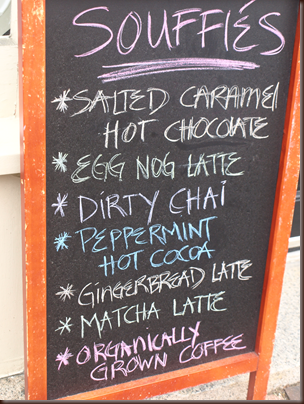 SOUFFLÉS
* SALTED CARAMEL
HOT CHOCOLATE
* EGG NOG LATTE
* DIRTY CHAI
* PEPPERMINT
HOT COCOA
* GINGERBREAD LATTE
* MATCHA LATTE
* ORGANICALLY
GROWN COFFEE